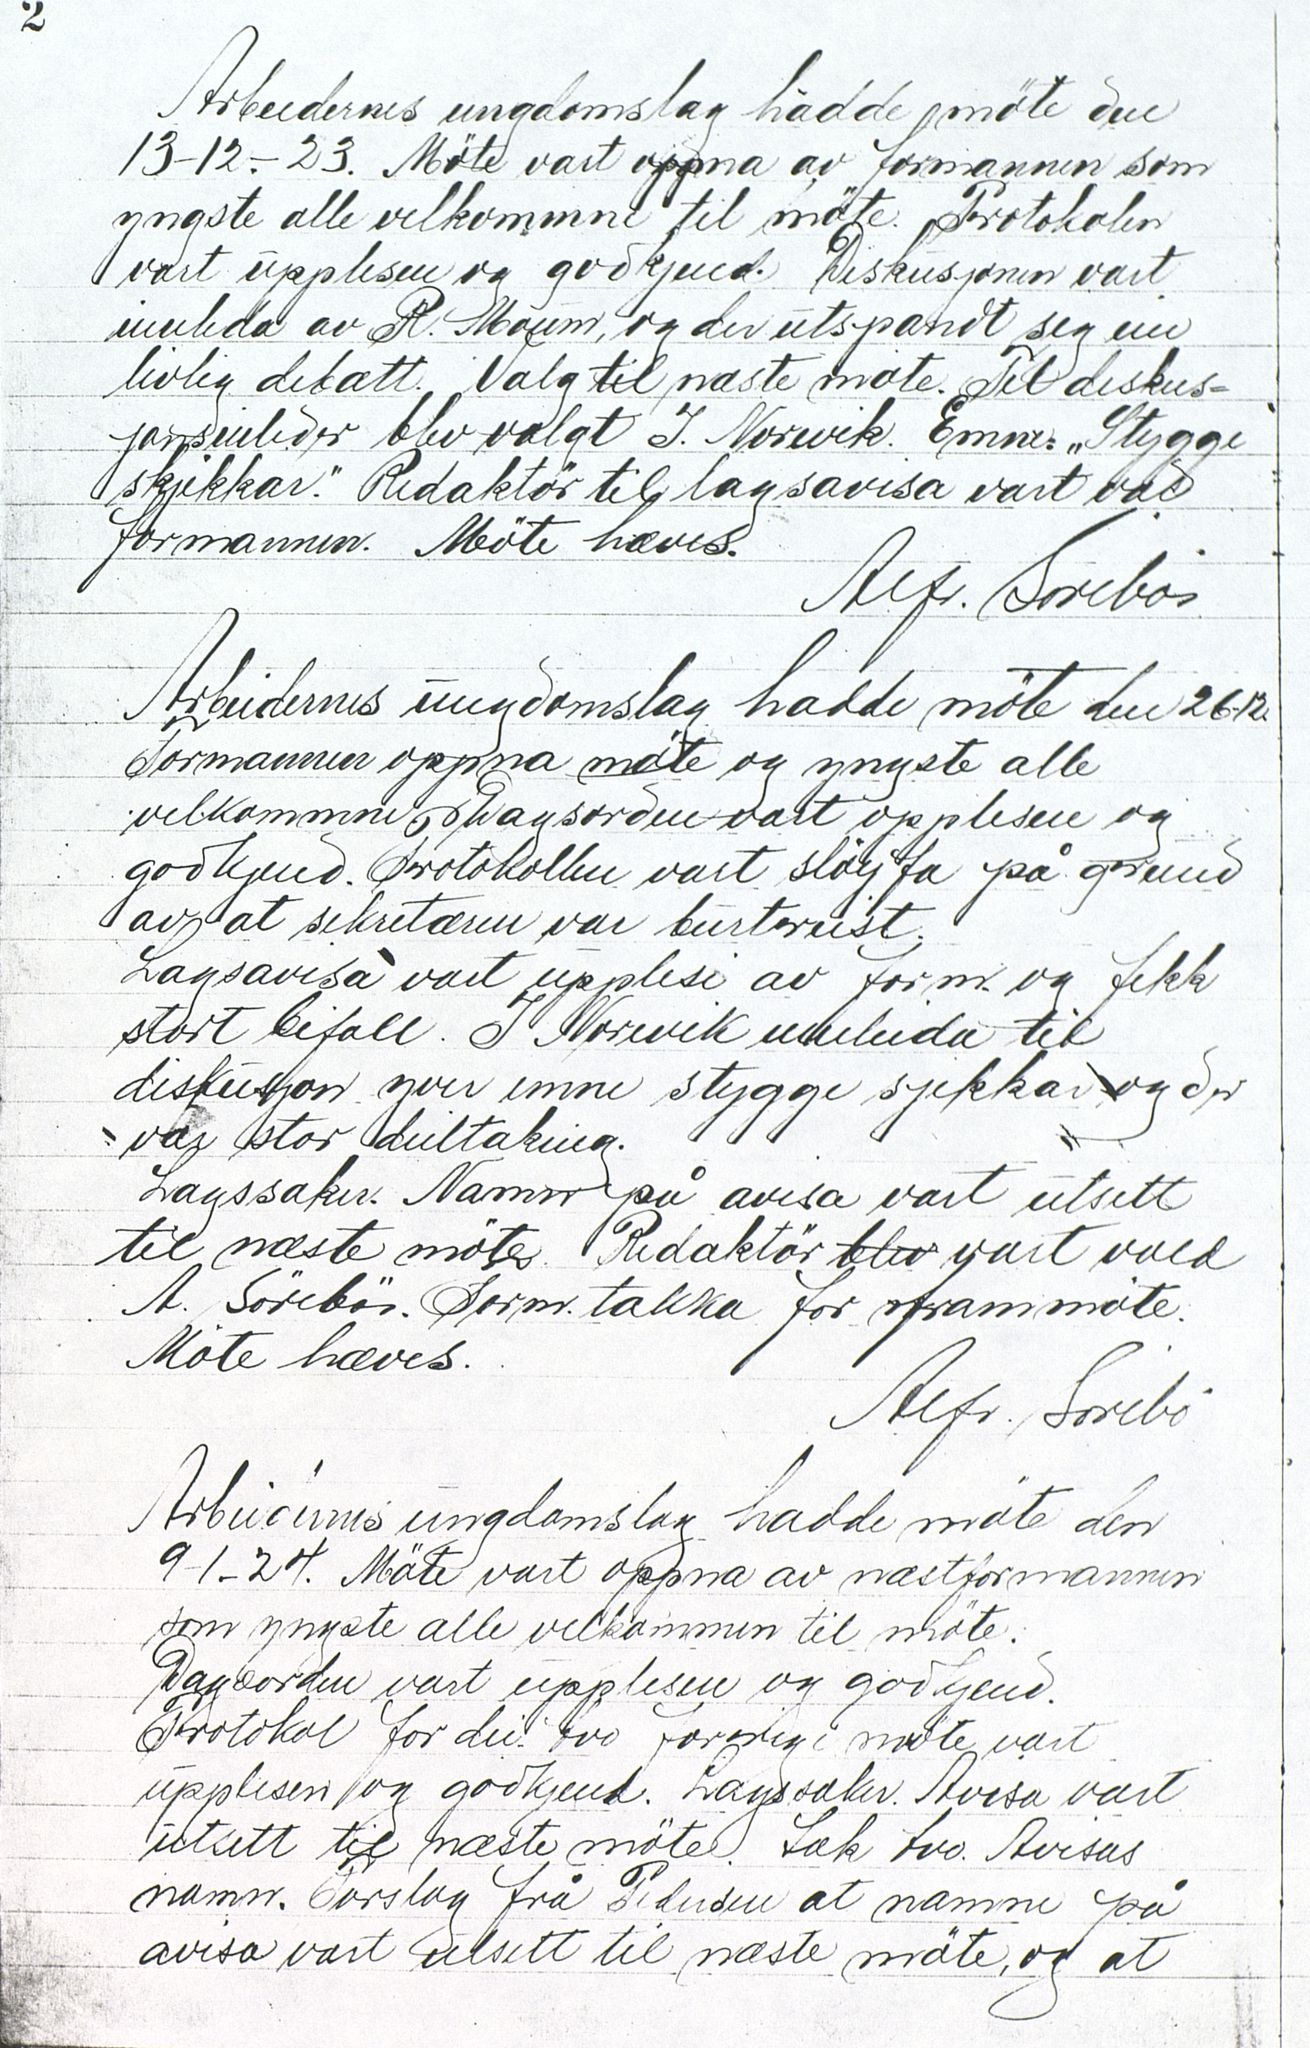 2
Arbeidernes ungdomslag hadde möte den
13-12-23. Möte vart oppna av formannen som
yngste alle velkommne til möte. Protokolen
vart upplesen og godkjend. Diskusjonen vart
innleda av R. Moum, og der utspandt seg ein
livlig debatt. Valg til næste möte. Til diskus-
jonsinleder blev valgt I. Norevik. Emne: „Stygge
skjikkar." Redaktör til lagsavisa vart val
formannen. Möte hæves.
Alfr. Sörebö
Arbeidernes ungdomslag hadde möte den 26-12.
Formannen oppna möte og yngste alle
velkommne. Dagsorden vart opplesen og
godkjend. Protokollen vart slöyfa på grund
av at sekretæren var burtreist.
Lagsavisa vart upplesi av form. og fekk
stort bifall. I Norevik innleida til
diskusjon yver emne stygge sjikkar og der
var stor deiltaking.
Lagssaker. Namn på avisa vart utsett
til næste möte. Redaktör blev vart vald
A. Sörebö. Form. takka for frammöte.
Möte hæves.
Alfr. Sörebö
Arbeidernes ungdomslag hadde möte den
9-1-24. Möte vart oppna av næstformannen
som yngste alle velkommen til möte.
Dagsorden vart upplesen og godkjend.
Protokol for dei tvo forrige möte vart
upplesen og godkjend. Lagssaker. Avisa vart
utsett til næste möte. Sak tvo. Avisas
namn. Forslag frå Pedersen at namne på
avisa vart utsett til næste möte, og at